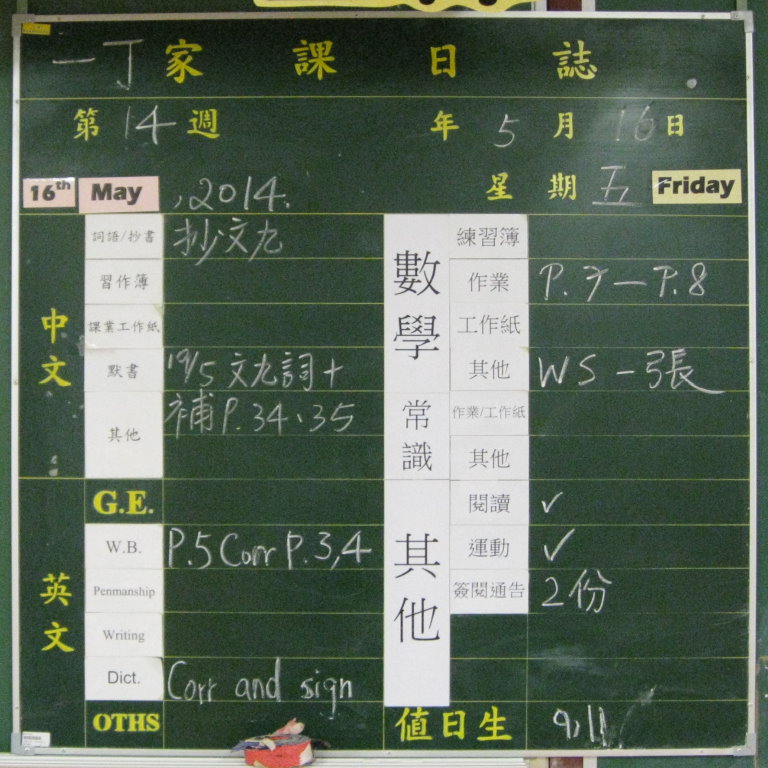 一丁家課日誌
第14週 年5月16日
16th May ,2014. 星期五 Friday
中文
詞語/抄書 抄文九
習作簿
課業工作紙
默書 19/5 文九詞+
其他 補P.34、35
英文
G.E.
W.B. P.5 Corr P.3,4
Penmanship
Writing
Dict. Corr and sign
OTHS
數學
練習簿
作業 P.7—P.8
工作紙
其他 WS一張
常識
作業/工作紙
其他
其他
閱讀 ✓
運動 ✓
簽閱通告 2份
值日生 9,11